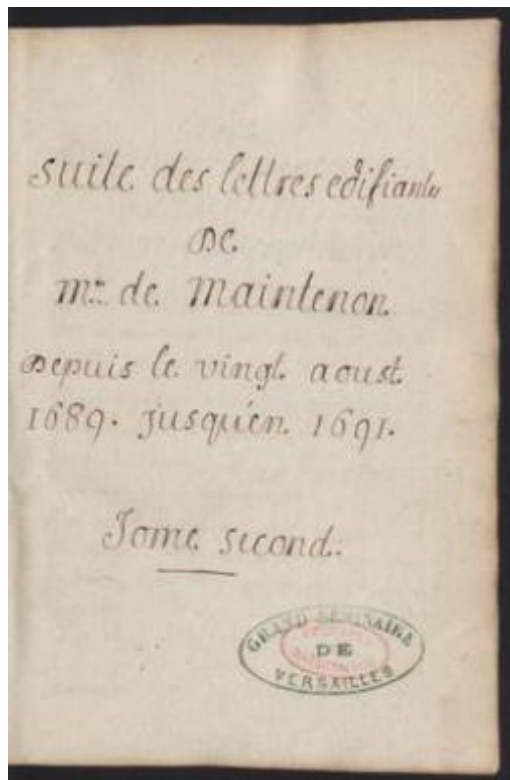 suite des lettres edifiantes
De
m.e de Maintenon
Depuis le vingt aoust
1689. jusqu'en 1691.
Tome second.
GRAND SEMINAIRE
DE
VERSAILLES